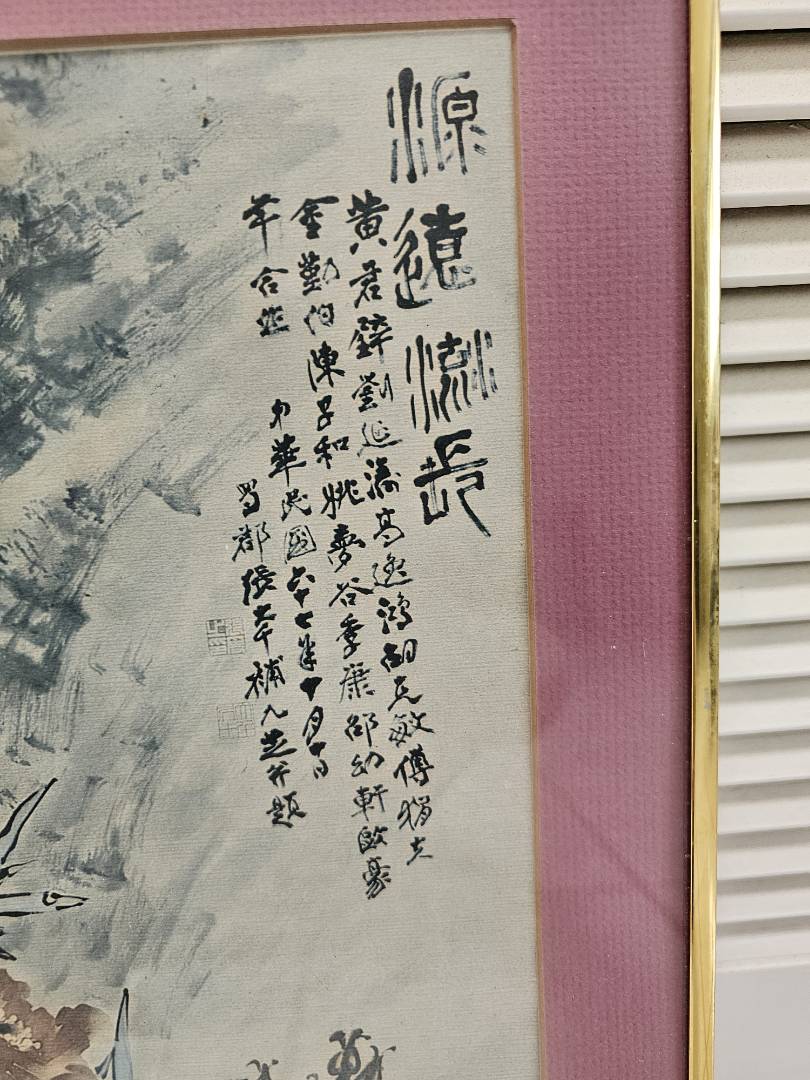 源遠流長
黃君璧劉延濤高逸鴻胡克敏傅狷夫
金勤伯陳子和姚夢谷季康邵幼軒歐豪
年合作 中華民國六十七年十月十日
蜀郡張大千補九芝并題